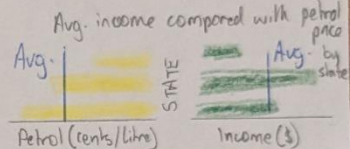 Avg. income compared with petrol
price
by
state
Avg.
STATE
Avg.
Petrol (cents/litre)
Income ($)